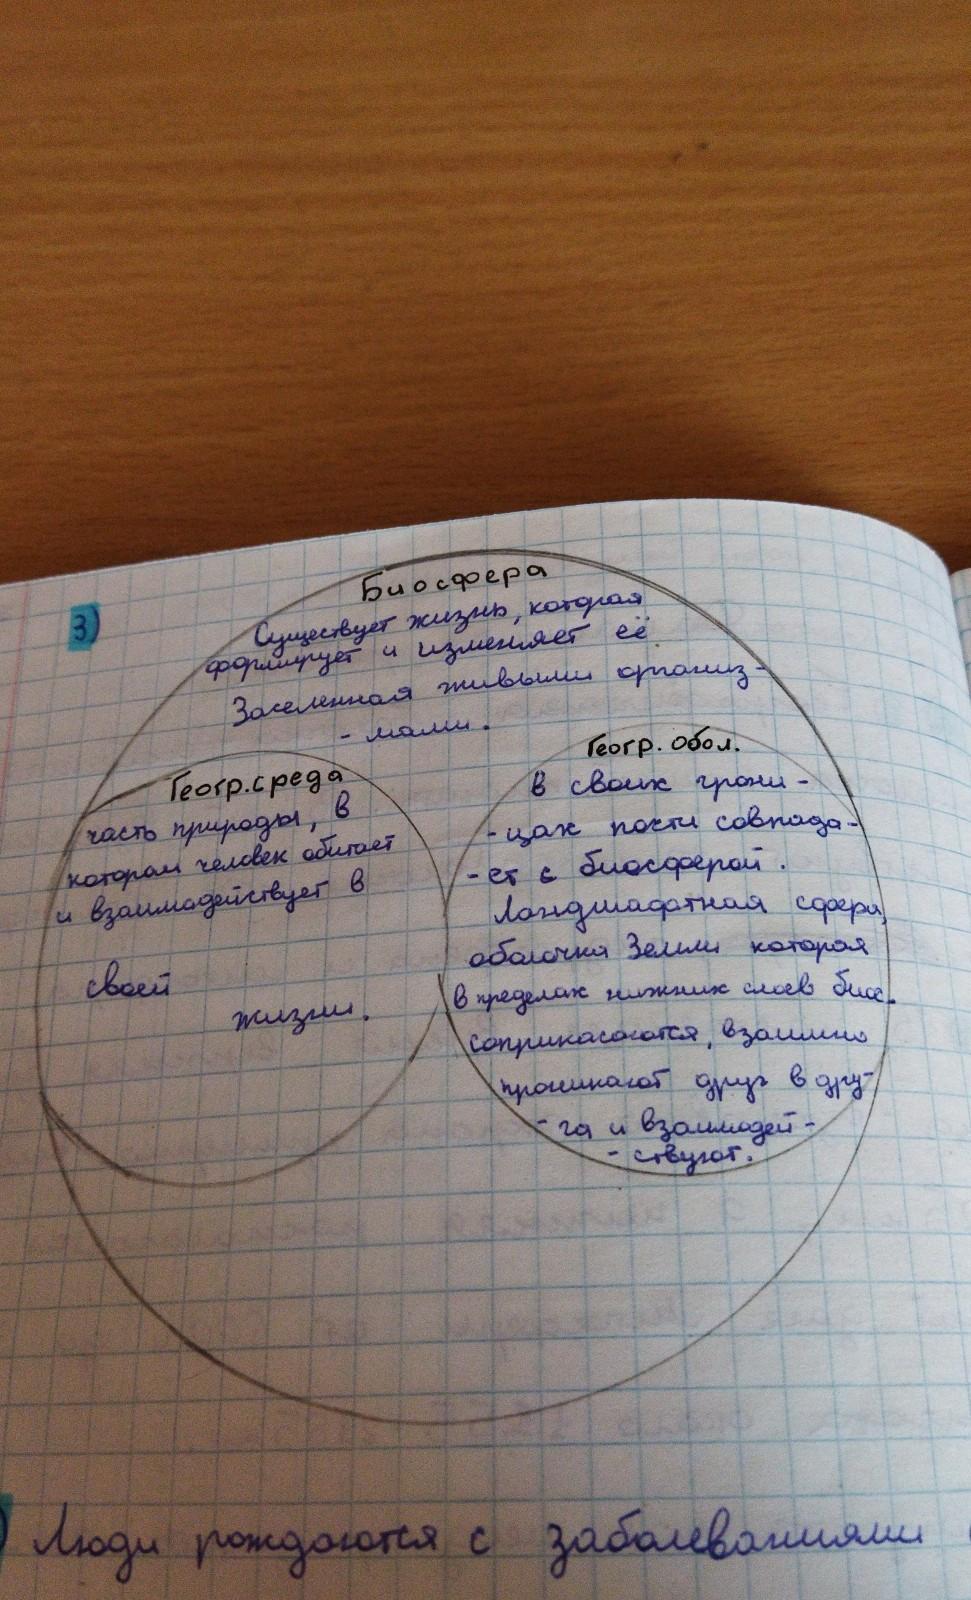 3)
Биосфера
Существует жизнь, которая
формирует и изменяет её
Заселенная живыми организ-
- мами.
Геогр. среда
часть природы, в
котором человек обитает
и взаимодействует в
своей
жизни.
Геогр. обол.
В своих грани-
- цах почти совпада-
- ет с биосферой.
Ландшафтная сфера,
оболочка Земли которая
в пределах нижних слоев биос.
соприкасаются, взаимно
проникают друг в дру-
- га и взаимодей-
- ствуют.
) Люди рождаются с заболеваниями